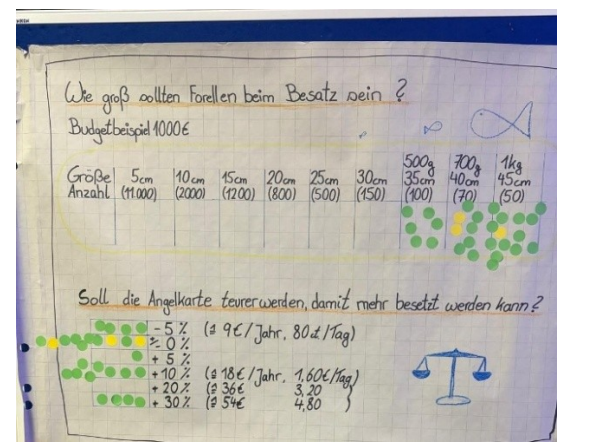 Wie groß sollten Forellen beim Besatz sein?
Budgetbeispiel 1000€
500g 700g 1kg
Größe 5cm 10cm 15cm 20cm 25cm 30cm 35cm 40cm 45cm
Anzahl (11.000) (2000) (1200) (800) (500) (150) (100) (70) (50)
Soll die Angelkarte teurer werden, damit mehr besetzt werden kann?
- 5 % (≙ 9€/Jahr, 80ct/Tag)
± 0 %
+ 5 %
+ 10 % (≙ 18€/Jahr, 1,60€/Tag)
+ 20 % (≙ 36€ 3,20
+ 30 % (≙ 54€ 4,80 )